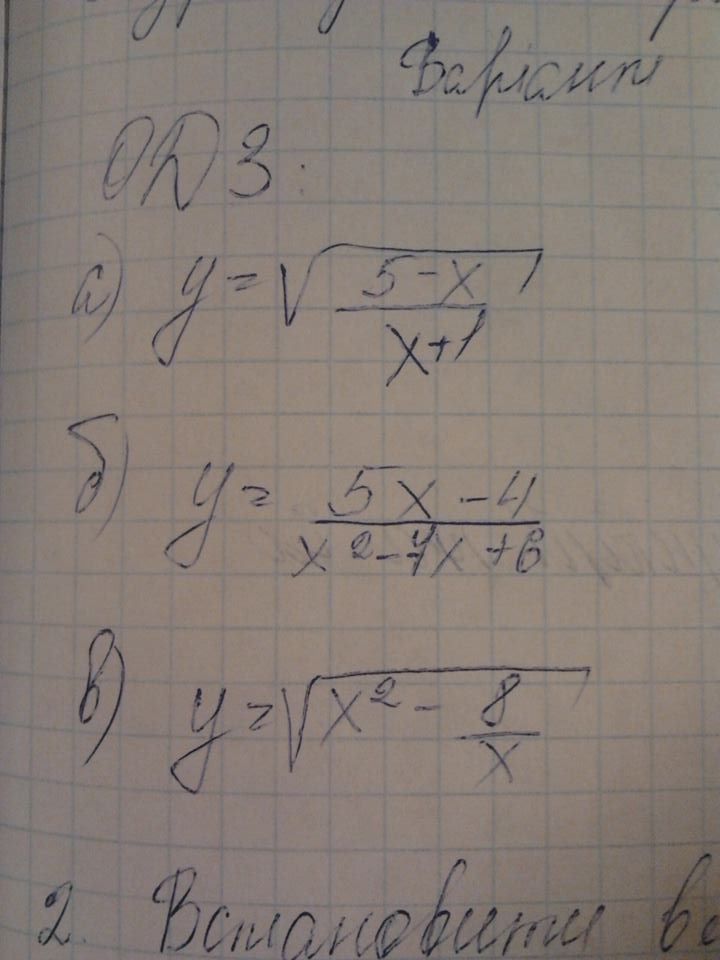 Варіант
ОДЗ:
а) y = √((5-x)/(x+1))
б) y = (5x-4)/(x²-7x+6)
в) y = √(x² - 8/x)
2. Встановити